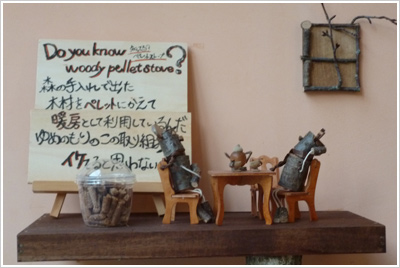 Do you know
woody pellet stove?
森の手入れで出た
木材をペレットにかえて
暖房として利用しているんだ
ゆめのもりのこの取り組
イケてると思わない